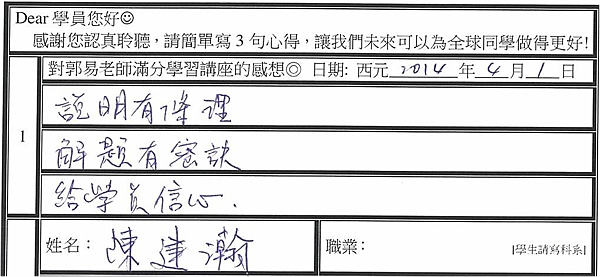 Dear 學員您好☺
感謝您認真聆聽，請簡單寫 3 句心得，讓我們未來可以為全球同學做得更好!
對郭易老師滿分學習講座的感想◎ 日期: 西元 2014 年 4 月 1 日
1
說明有條理
解題有密訣
給學員信心.
姓名： 陳建瀚
職業： [學生請寫科系]